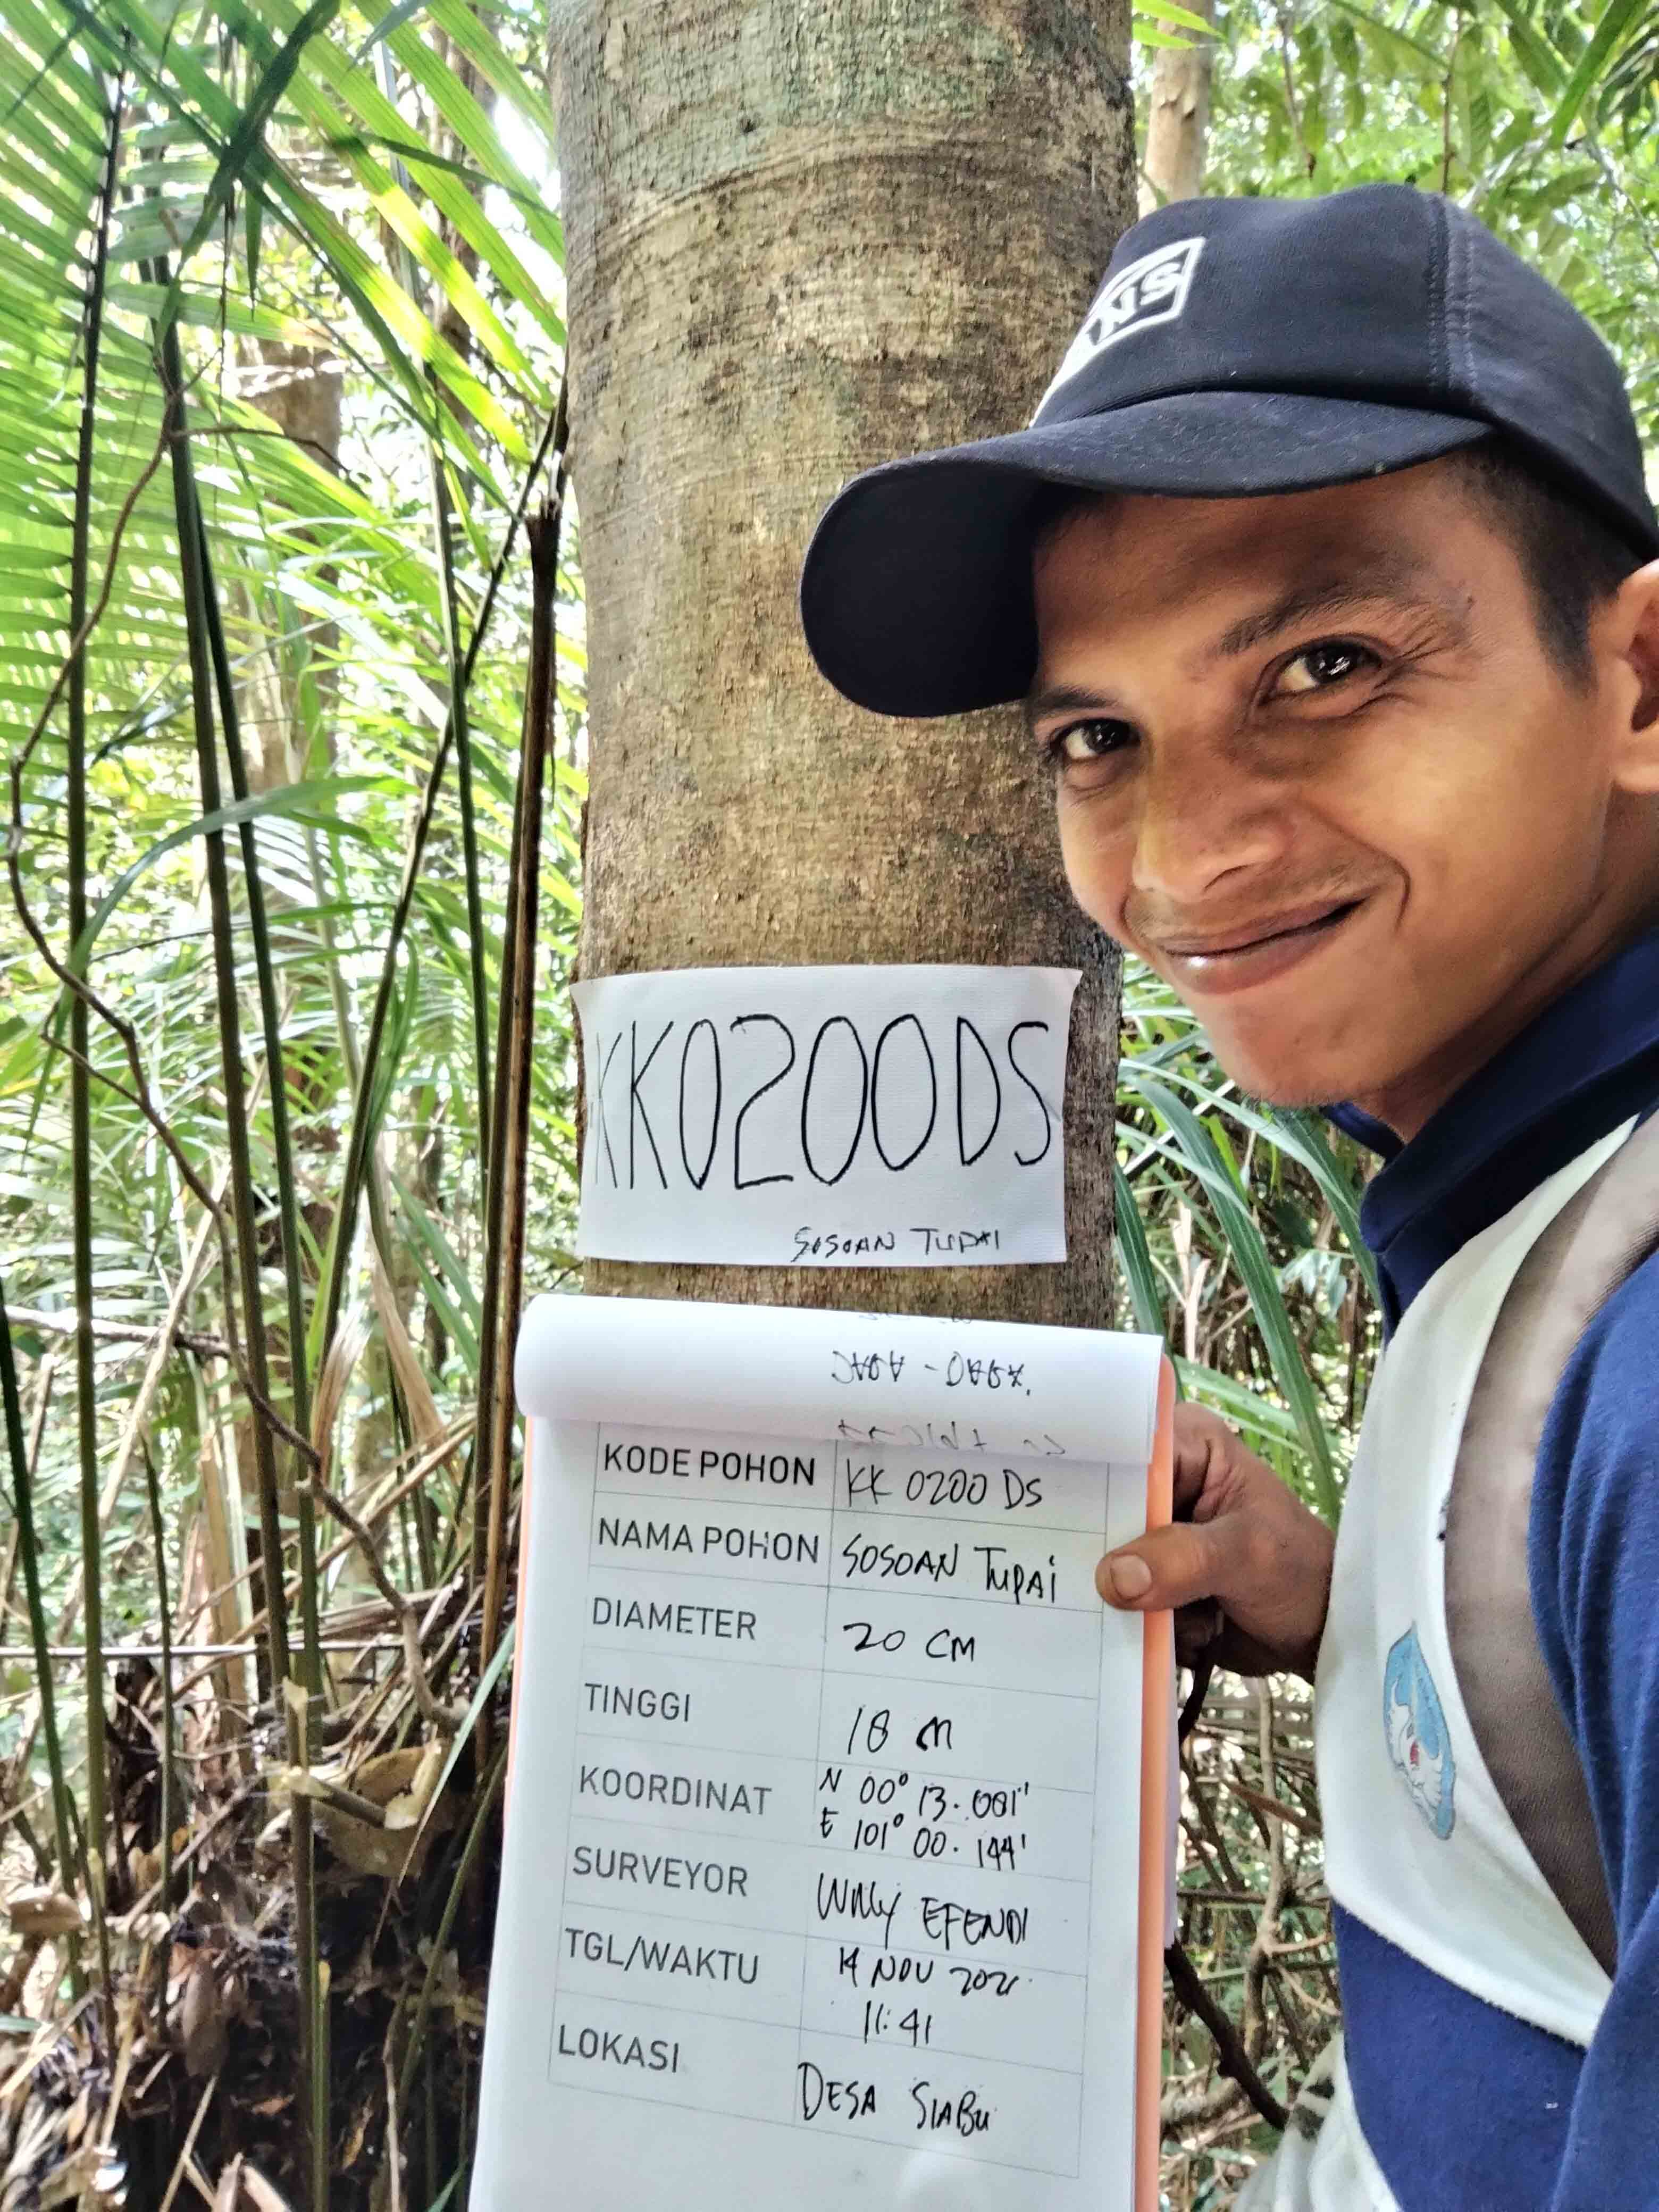 KK0200DS
SOSOAN TUPAI
KODE POHON KK 0200 DS
NAMA POHON SOSOAN TUPAI
DIAMETER 20 CM
TINGGI 18 m
KOORDINAT N 00° 13.081"
E 101° 00.144'
SURVEYOR WILLY EFENDI
TGL/WAKTU 14 NOV 2021
11:41
LOKASI DESA SIABU